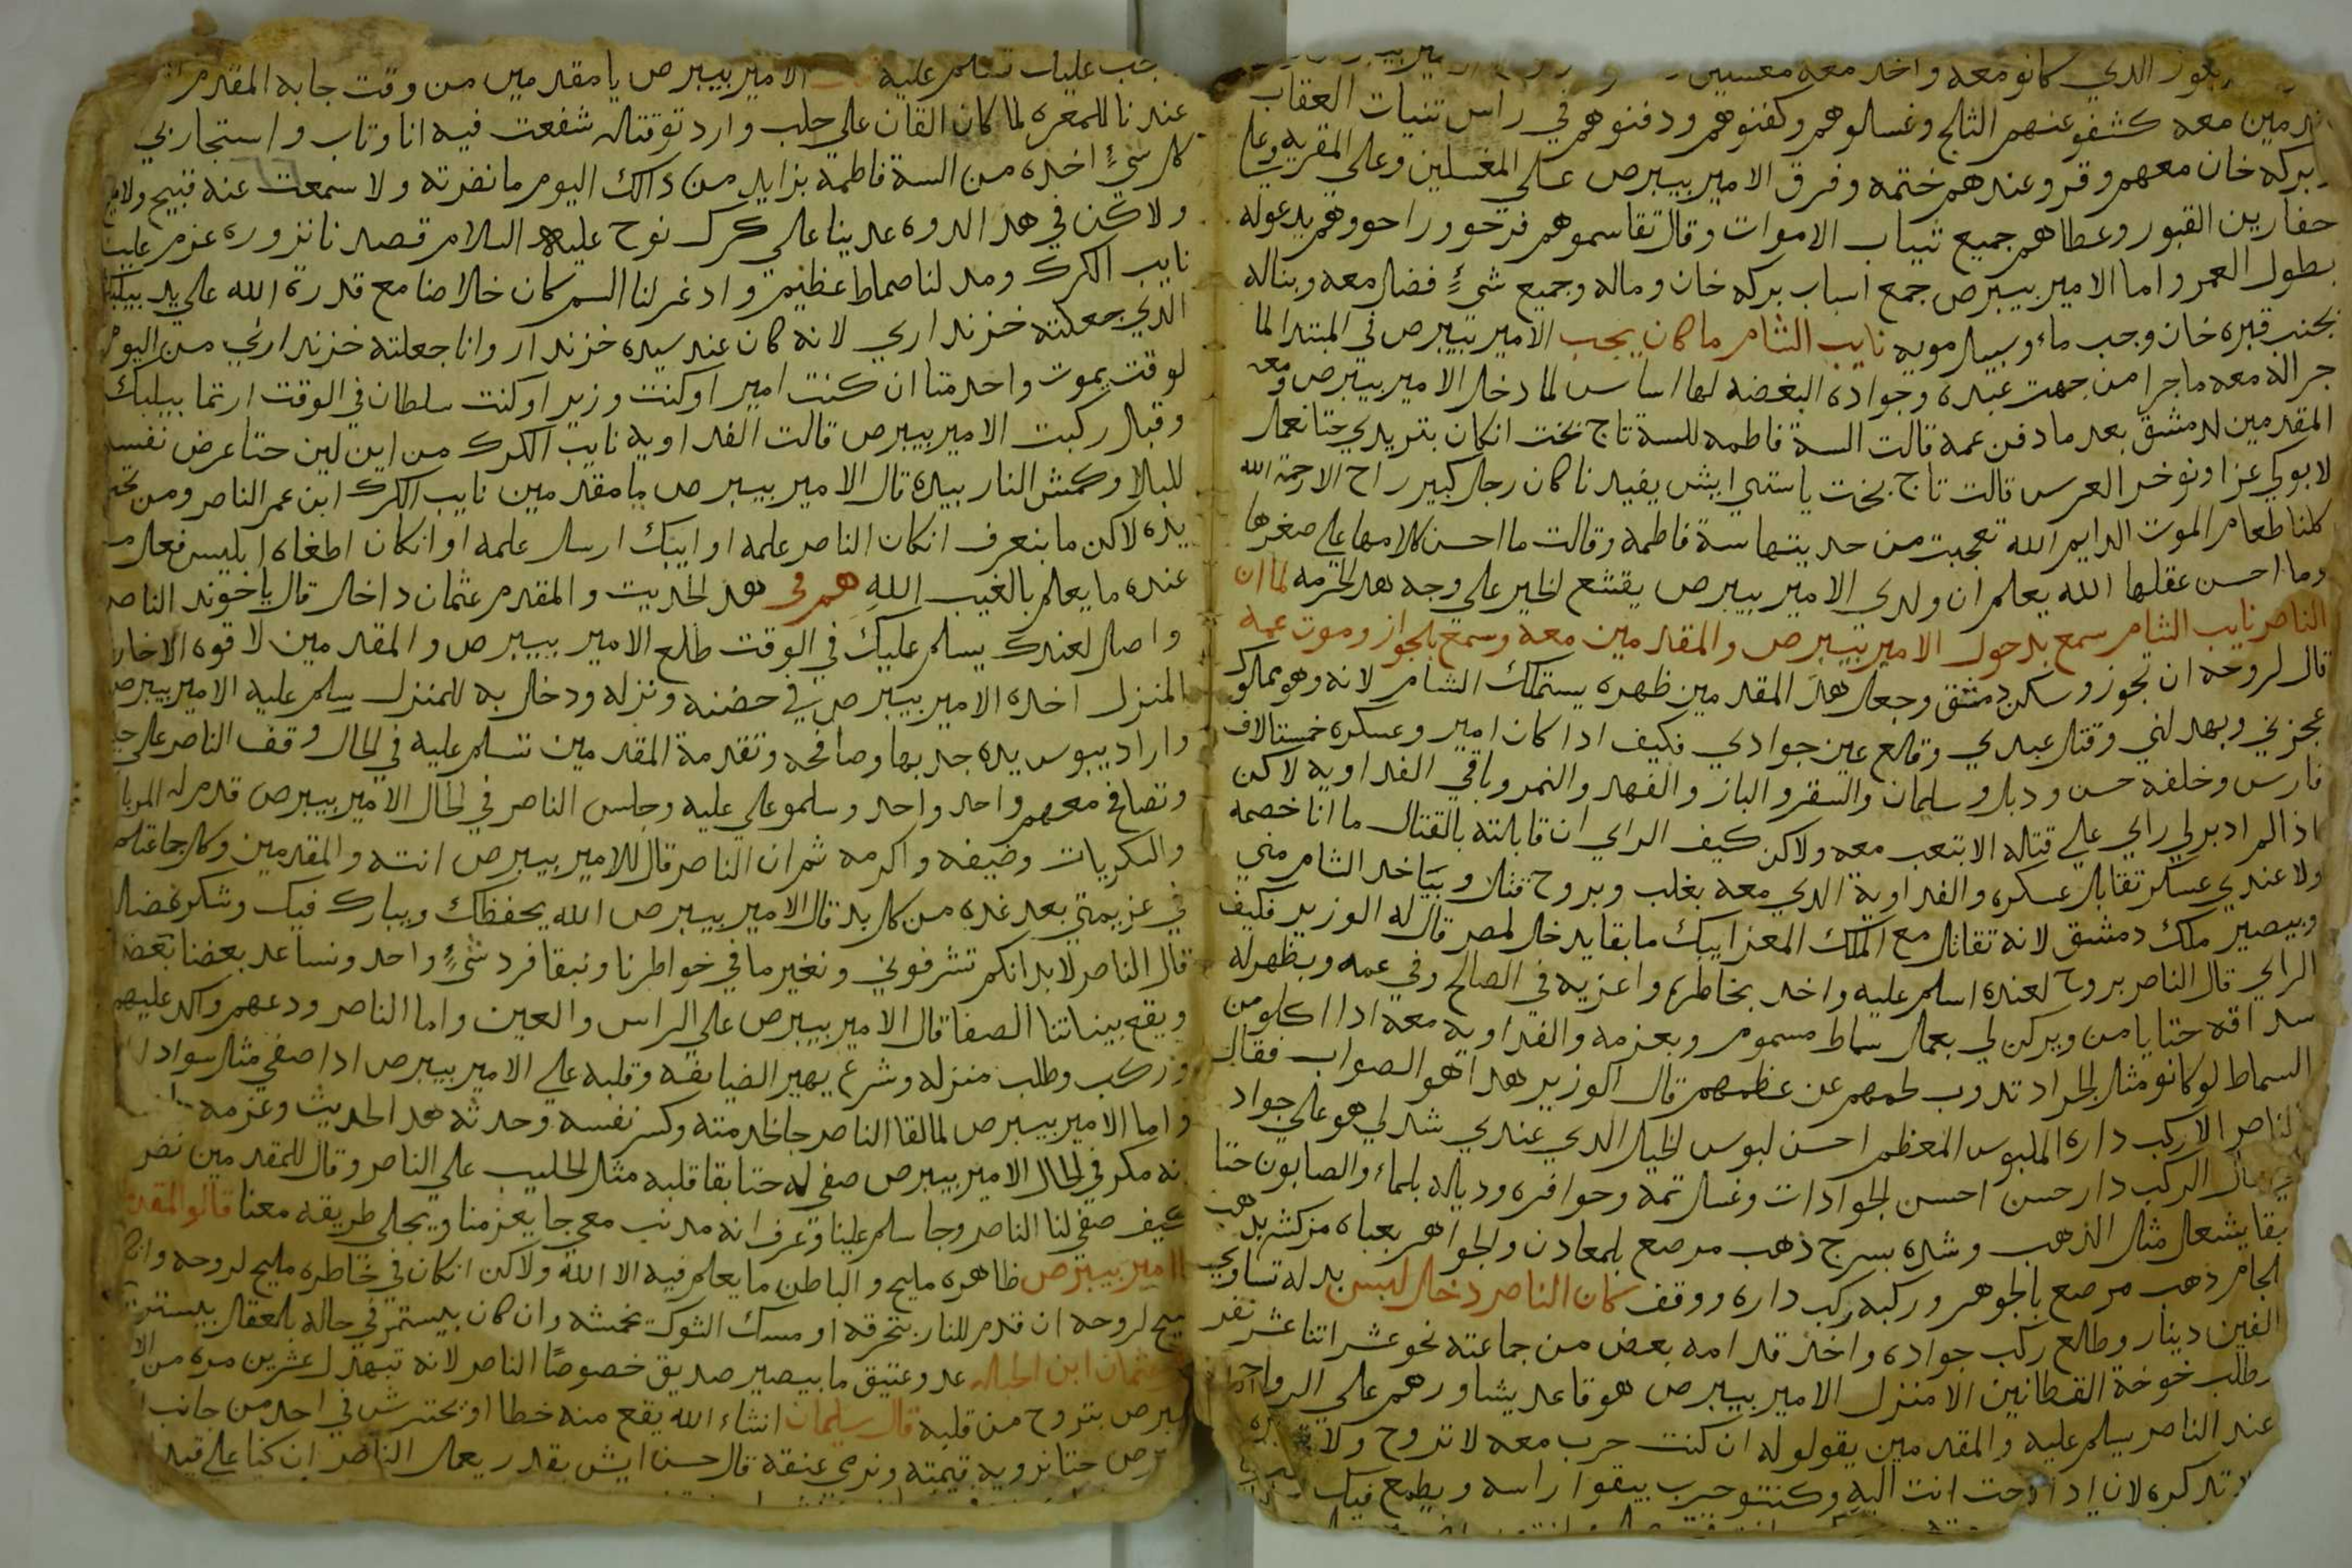 الدي كانو معه واخد معه معسيين
معه كشفو عنهم الثلج وغسلوهم وكفنوهم ودفنوهم في راس تنيات العقاب
بركه خان معهم وقرو عندهم ختمه وفرق الامير بيبرص علي المغسلين وعلي المقريه وعلي
حفارين القبور وعطاهم جميع تياب الاموات وقال تقاسموهم فرحو وراحو وهم يدعوله
بطول العمر واما الامير بيبرص جمع اسباب بركه خان وماله وجميع شيءٍ فضل معه وبناله
بجنب قبره خان وجب ماء وسبيل مويه نايب الشام ما كان يجب الامير بيبرص في المبتدا لما
جراله معه ما جرا من جهت عبده وجواده البغضه لها اساس لما دخل الامير بيبرص ومعه
المقدمين لدمشق بعد ما دفن عمه قالت السة فاطمه للسة تاج بخت انكان بتريدي حتا نعمل
لابوكي عزا ونوخر العرس قالت تاج بخت ياستي ايش يفيدنا كان رجل كبير راح الا رحمة الله
كلنا طعام الموت الدايم الله تعجبت من حديتها سة فاطمه وقالت ما احسن كلامها علي صغرها
وما احسن عقلها الله يعلم ان ولدي الامير بيبرص يقشع الخير علي وجه هدالحرمه لما ان
الناصر نايب الشام سمع بدخول الامير بيبرص والمقدمين معه وسمع بلجواز وموت عمه
قال لروحه ان تجوز وسكن دمشق وجعل هد المقدمين ظهره يستملك الشام لانه وهو مملوك
عجزني وبهدلني وقتل عبدي وقلع عين جوادي فكيف ادا كان امير وعسكره خمستالاف
فارس وخلفه حسن ودبل وسليمان والسقر والباز والفهد والنمر وباقي الفداويه لاكن
اذا لم ادبرلي راي علي قتله الا بتعب معه ولاكن كيف الراي ان قابلته بالقتال ما انا خصمه
ولا عندي عسكر تقابل عسكره والفداوية الدي معه بغلب وبروح قتل وبياخد الشام مني
وبيصير ملك دمشق لانه تقاتل مع الملك المعز ايبك ما بقا يدخل لمصر قال له الوزير فكيف
الراي قال الناصر بروح لعنده اسلم عليه واخد بخاطره واعزيه في الصالح وفي عمه وبظهرله
سداقه حتا يامن ويركن لي بعمل سماط مسموم وبعزمه والفداويه معه ادا اكلو من
السماط لو كانو مثل الجراد تدوب لحمهم عن عظمهم قال الوزير هدا هو الصواب فقال
الناصر الا ركب داره الملبوس المعظم احسن لبوس الخيل الدي عندي شدلي هو علي جواد
الركب دار حسن احسن الجوادات وغسل تمه وحوافره ودياله بلماء والصابون حتا
بقا يشعل مثل الذهب وشده بسرج ذهب مرصع بلمعادن والجواهر بعباه مزكش بدهب
لجام ذهب مرصع بالجوهر وركبه ركب داره ووقف كان الناصر دخل لبس بدله تساوي
الفين دينار وطلع ركب جواده واخذ قدامه بعض من جماعته نحو عشر اتنا عشر نفر
وطلب خوخة القطانين الا منزل الامير بيبرص هو قاعد يشاورهم علي الرواح
عند الناصر يسلم عليه والمقدمين يقولوله ان كنت حرب معه لا تروح ولا
تدكره لان ادا رحت انت اليه وكنتو حرب بيقوا راسه ويطمع فيك
عليك تسلم عليه الامير بيبرص يا مقدمين من وقت جابه المقدم
عندنا للمعره لما كان القان علي حلب وارد توقتاله شفعت فيه انا وتاب واستجار بي
كل شيءٍ اخده من السة فاطمه بزايد من دالك اليوم ما نضرته ولا سمعت عنه قبيح ولا
ولاكن في هد الدوه عدينا علي كرك نوح عليه السلام قصدنا نزوره عزم علينا
نايب الكرك ومد لنا صماط عظيم وادغر لنا السم كان خلاصنا مع قدرة الله علي يد بيلبك
الدي جعلته خزنداري لانه كان عند سيده خزندار وانا جعلته خزنداري من اليوم
لوقت يموت واحد متنا ان كنت امير او كنت وزير او كنت سلطان في الوقت ارتما بيلبك
وقبل ركبت الامير بيبرص قالت الفداويه نايب الكرك من اين لين حتا عرض نفسه
للبلا وكمش النار بيده قال الامير بيبرص يا مقدمين نايب الكرك ابن عم الناصر ومن تحت
يده لاكن ما بنعرف انكان الناصر علمه او ايبك ارسل علمه او انكان اطغاه ابليس فعل من
عنده ما يعلم بالغيب الله هم في هد الحديت والمقدم عثمان داخل قال ياخوند الناصر
واصل لعندك يسلم عليك في الوقت طلع الامير بيبرص والمقدمين لاقوه الا خارج
المنزل اخده الامير بيبرص في حضنه ونزله ودخل به للمنزل يسلم عليه الامير بيبرص
واراد يبوس يده جدبها وصافحه وتقدمة المقدمين تسلم عليه في الحال وقف الناصر علي حيله
وتصافح معهم واحد واحد وسلمو علي عليه وجلس الناصر في الحال الامير بيبرص قدم له المربا
والسكريات وضيفه واكرمه ثم ان الناصر قال للامير بيبرص انته والمقدمين وكل جماعتكم
في عزيمتي بعد غده من كل بد قال الامير بيبرص الله يحفظك ويبارك فيك وشكر فضله
قال الناصر لابد انكم تشرفوني ونغير ما في خواطرنا ونبقا فرد شيءٍ واحد ونساعد بعضنا بعض
ويقع بيناتنا الصفا قال الامير بيبرص علي الراس والعين واما الناصر ودعهم واكد عليهم
وركب وطلب منزله وشرع يهير الضيافه وقلبه علي الامير بيبرص ادا صفي مثل سواد
واما الامير بيبرص لما لقا الناصر جا لخدمته وكسر نفسه وحدثه هد الحديث وعزمه
نه مكر في الحال الامير بيبرص صفي له حتا بقا قلبه مثل الحليب علي الناصر وقال للمقدمين نضر
كيف صفي لنا الناصر وجا سلم علينا وعرف انه مدنب معي جا يعزمنا ويجلي طريقه معنا قالو المقد
الامير بيبرص ظاهره مليح والباطن ما يعلم فيه الا الله ولاكن انكان في خاطره مليح لروحه وانكان
قبيح لروحه ان قدم للنار بتحرقه او مسك الشوك بخمشه وان كان بيستمر في حاله بلعقل بيستمر
عثمان ابن الحبله عدو عتيق ما بيصير صديق خصوصًا الناصر لانه تبهدل عشرين مره من
بيبرص بتروح من قلبه قال سليمان انشاء الله يقع منه خطا او بحترش في احد من جانب
حتا نرويه قيمته ونرمي عنقه قال حسن ايش بقدر يعمل الناصر ان كنا علي قيد